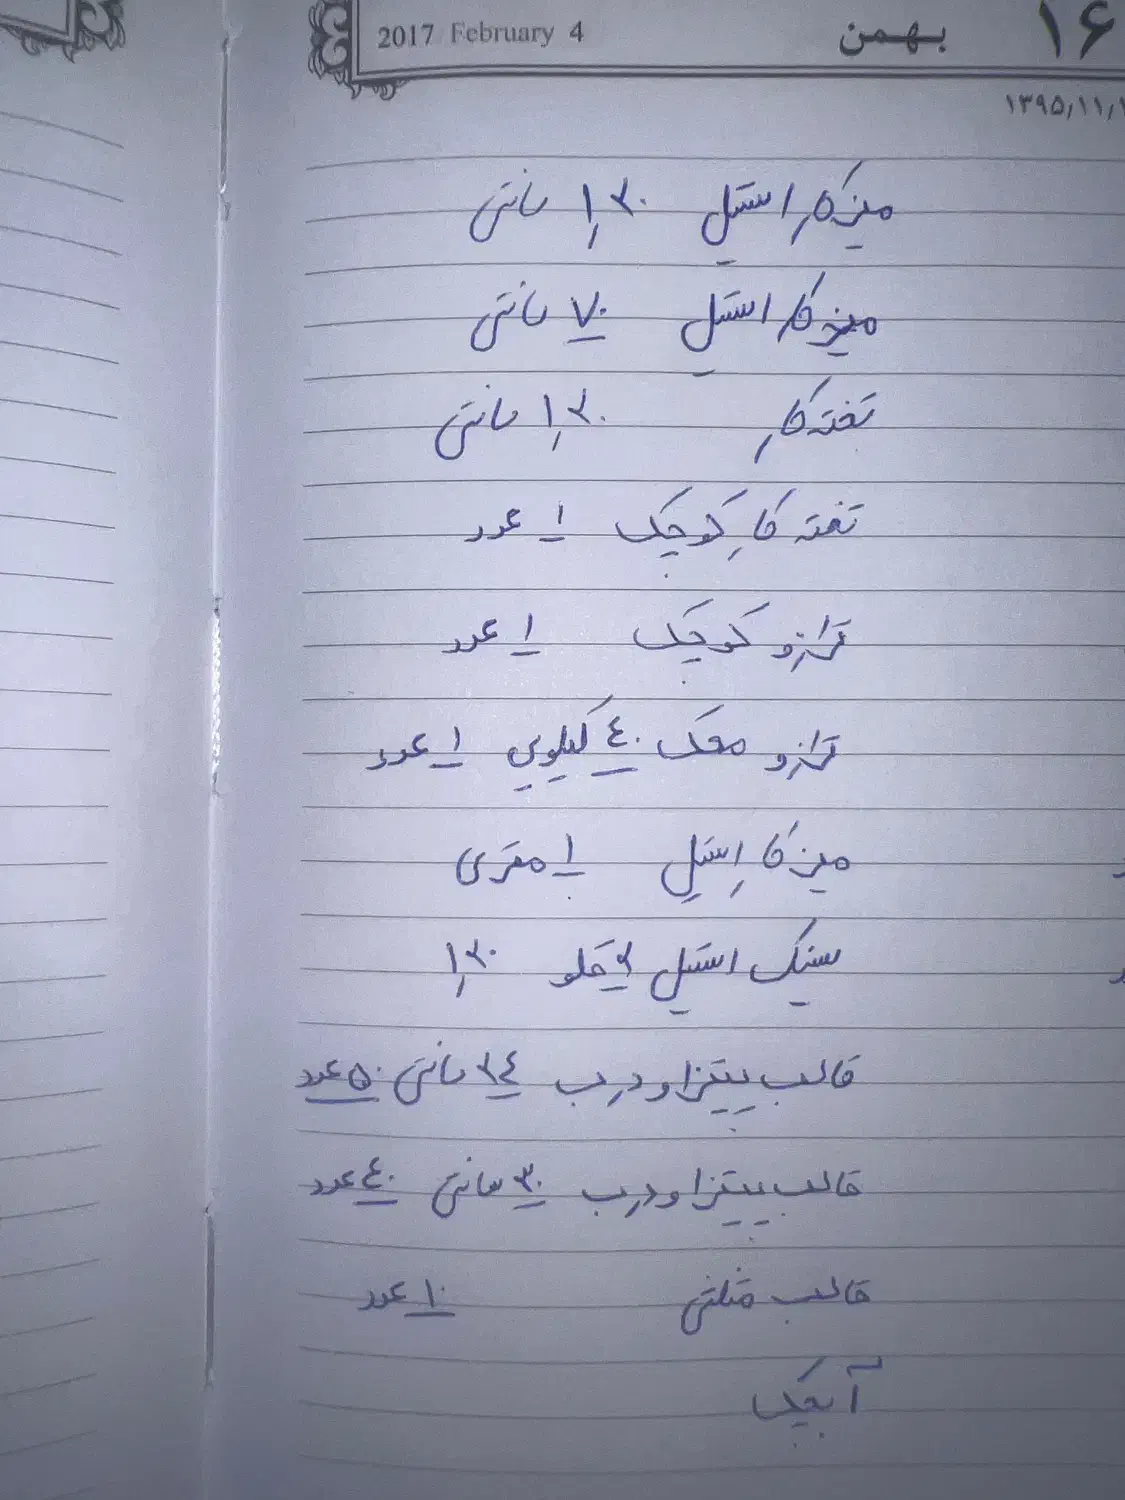 2017 February 4 بهمن ۱۶
۱۳۹۵/۱۱/۱
میزکار استیل ۱٫۲۰ سانتی
میز کار استیل ۷۰ سانتی
تخته کار ۱٫۲۰ سانتی
تخته کار کوچک ۱ عدد
ترازو کوچک ۱ عدد
ترازو محک ۴۰ کیلویی ۱ عدد
میز کار استیل ۱ متری
سینک استیل ۲ قلو ۱٫۲۰
قالب پیتزا و درب ۲۴ سانتی ۵۰ عدد
قالب پیتزا و درب ۳۰ سانتی ۴۰ عدد
قالب مثلثی ۱۰ عدد
آبچک